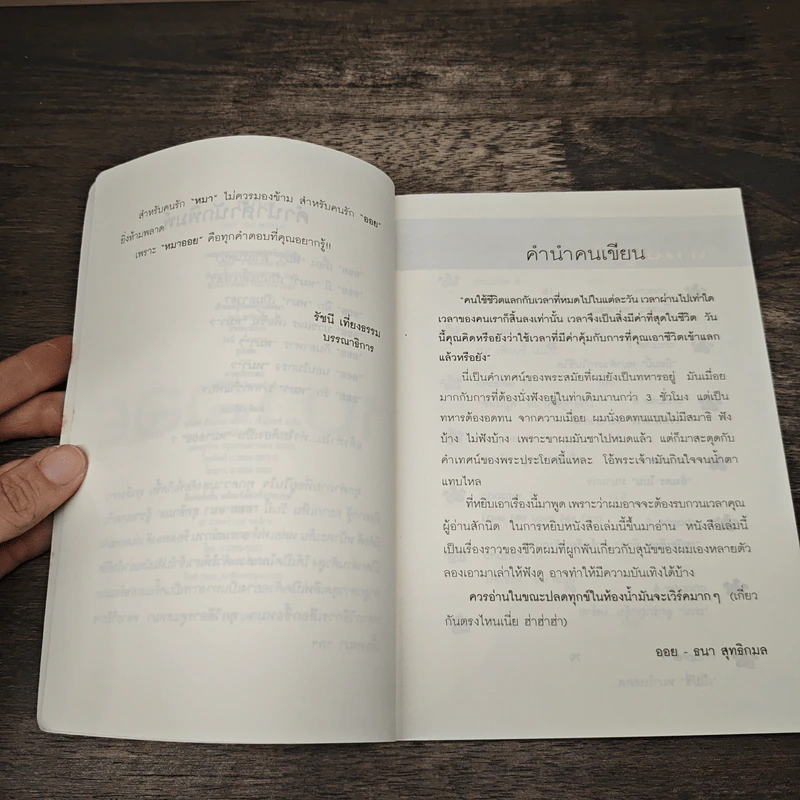 สำหรับคนรัก "หมา" ไม่ควรมองข้าม สำหรับคนรัก "ออย"
ยิ่งห้ามพลาด
เพราะ "หมาออย" คือทุกคำตอบที่คุณอยากรู้!!
รัชนี เที่ยงธรรม
บรรณาธิการ
คำนำคนเขียน
"คนใช้ชีวิตแลกกับเวลาที่หมดไปในแต่ละวัน เวลาผ่านไปเท่าใด
เวลาของคนเราก็สิ้นลงเท่านั้น เวลาจึงเป็นสิ่งมีค่าที่สุดในชีวิต วัน
นี้คุณคิดหรือยังว่าใช้เวลาที่มีค่าคุ้มกับการที่คุณเอาชีวิตเข้าแลก
แล้วหรือยัง"
นี่เป็นคำเทศน์ของพระสมัยที่ผมยังเป็นทหารอยู่ มันเมื่อย
มากกับการที่ต้องนั่งฟังอยู่ในท่าเดิมนานกว่า 3 ชั่วโมง แต่เป็น
ทหารต้องอดทน จากความเมื่อย ผมนั่งอดทนแบบไม่มีสมาธิ ฟัง
บ้าง ไม่ฟังบ้าง เพราะขาผมมันชาไปหมดแล้ว แต่ก็มาสะดุดกับ
คำเทศน์ของพระประโยคนี้แหละ โอ้พระเจ้า!มันกินใจจนน้ำตา
แทบไหล
ที่หยิบเอาเรื่องนี้มาพูด เพราะว่าผมอาจจะต้องรบกวนเวลาคุณ
ผู้อ่านสักนิด ในการหยิบหนังสือเล่มนี้ขึ้นมาอ่าน หนังสือเล่มนี้
เป็นเรื่องราวของชีวิตผมที่ผูกพันเกี่ยวกับสุนัขของผมเองหลายตัว
ลองเอามาเล่าให้ฟังดู อาจทำให้มีความบันเทิงได้บ้าง
ควรอ่านในขณะปลดทุกข์ในห้องน้ำมันจะเวิร์คมาก ๆ (เกี่ยว
กันตรงไหนเนี่ย ฮ่าฮ่าฮ่า)
ออย - ธนา สุทธิกมล